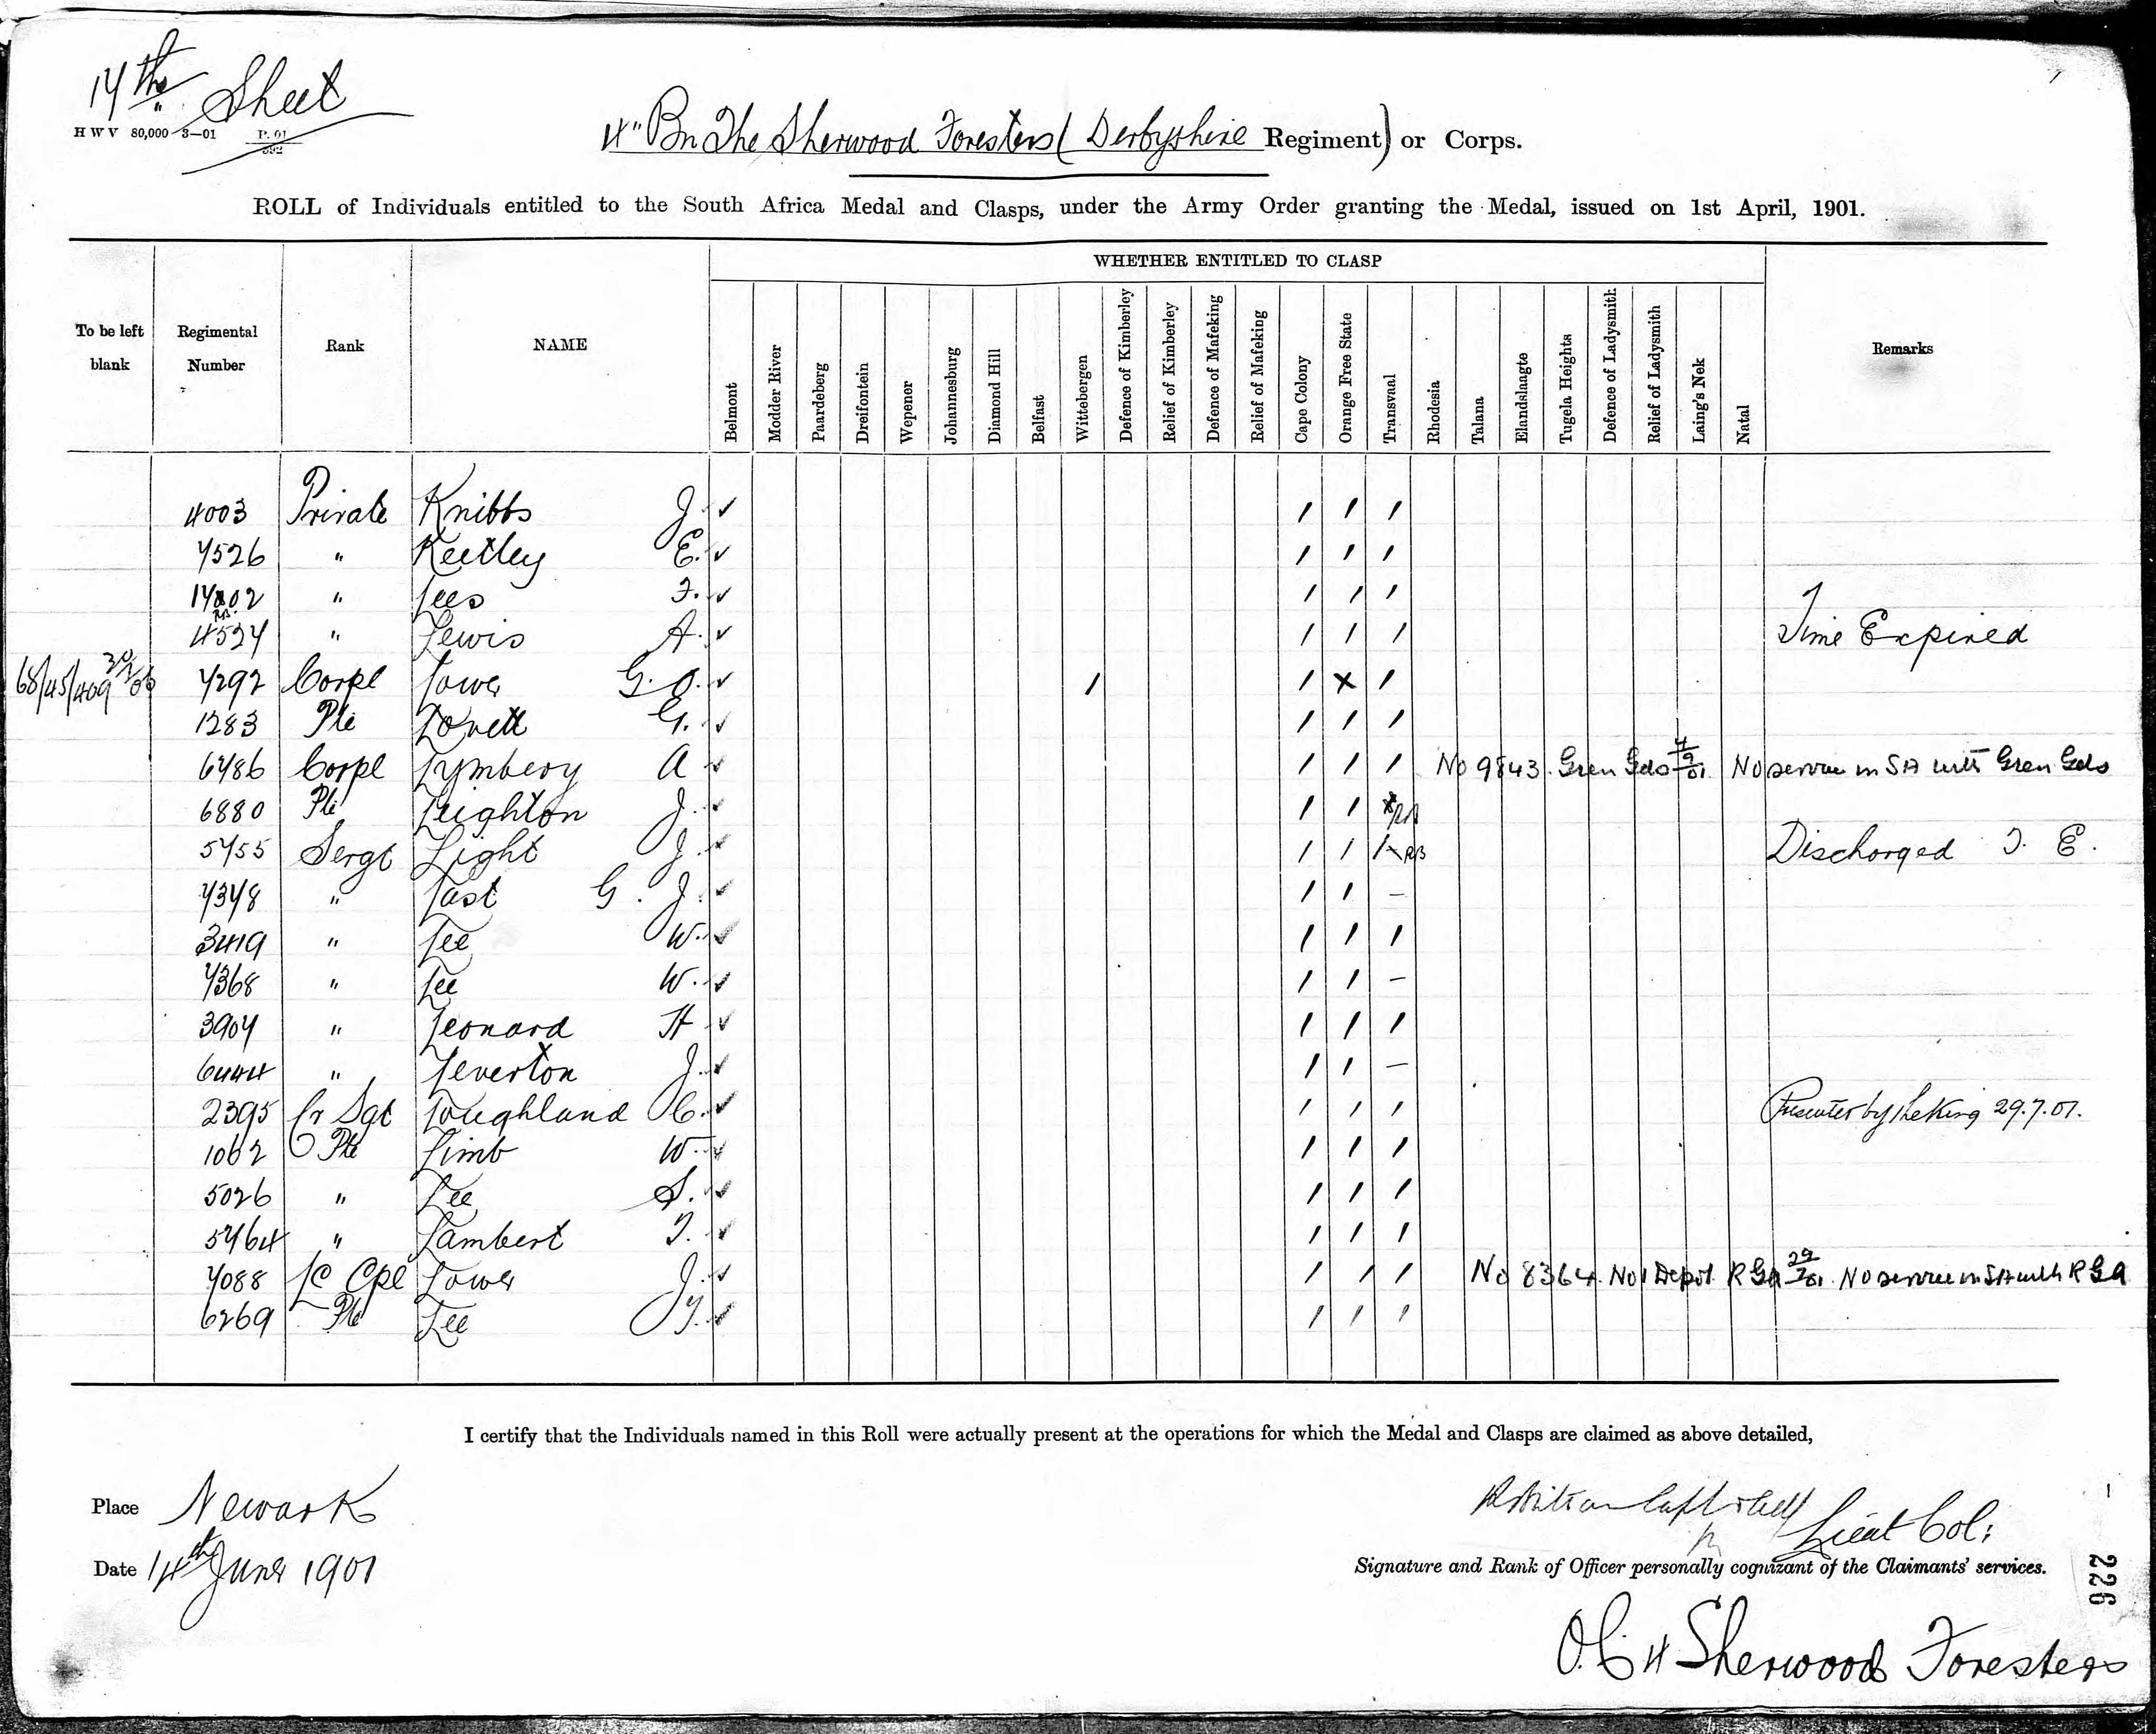 14th Sheet
H W V 80,000 3—01 P. 01 / 892
4" Bn The Sherwood Foresters ( Derbyshire Regiment) or Corps.
ROLL of Individuals entitled to the South Africa Medal and Clasps, under the Army Order granting the Medal, issued on 1st April, 1901.
WHETHER ENTITLED TO CLASP
To be left blank
Regimental Number
Rank
NAME
Belmont
Modder River
Paardeberg
Dreifontein
Wepener
Johannesburg
Diamond Hill
Belfast
Wittebergen
Defence of Kimberley
Relief of Kimberley
Defence of Mafeking
Relief of Mafeking
Cape Colony
Orange Free State
Transvaal
Rhodesia
Talana
Elandslaagte
Tugela Heights
Defence of Ladysmith
Relief of Ladysmith
Laing's Nek
Natal
Remarks
4003 Private Knibbs J. ✓ / / /
7526 " Keetley E. ✓ / / /
" Lees F. ✓ / / /
4527 " Lewis A. ✓ / / / Time Expired
68/45/409 7292 Corpl Lowe G. O. ✓ / / x /
1283 Pte Lovett G. ✓ / / /
6786 Corpl Lymbery A ✓ / / / No 9843 Gren Gds 4/9/01 No service in SA with Gren Gds
6880 Pte Leighton J. ✓ / / x RB
5755 Sergt Light J. ✓ / / / x RB Discharged T. E.
7348 " Last G. J. ✓ / / –
3419 " Lee W. ✓ / / /
7368 " Lee W. ✓ / / –
3907 " Leonard H ✓ / / /
6444 " Leverton J. ✓ / / –
2395 Cr Sgt Loughland C. ✓ / / / Presented by the King 29.7.01.
1062 Pte Limb W. ✓ / / /
5026 " Lee S. ✓ / / /
5764 " Lambert T. ✓ / / /
7088 LC Cpl Lowe J. ✓ / / / No 8364. No 1 Depot R G A 29/7/01. No service in SA with R G A
6269 Pte Lee J. ✓ / / /
I certify that the Individuals named in this Roll were actually present at the operations for which the Medal and Clasps are claimed as above detailed,
Place Newark
Date 14th June 1901
Lieut Col:
Signature and Rank of Officer personally cognizant of the Claimants' services.
O.C. 4 Sherwood Foresters
226